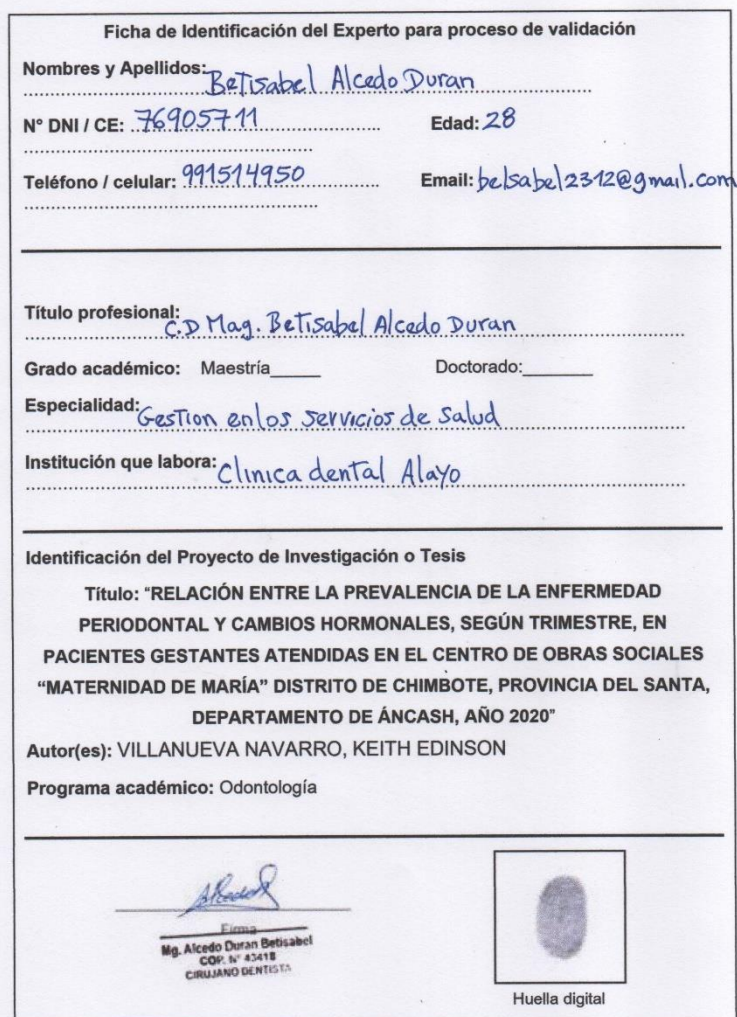 Ficha de Identificación del Experto para proceso de validación
Nombres y Apellidos: Betisabel Alcedo Duran
N° DNI / CE: 76905711 Edad: 28
Teléfono / celular: 991514950 Email: belsabel2312@gmail.com
Título profesional: C.D Mag. Betisabel Alcedo Duran
Grado académico: Maestría_____ Doctorado:_______
Especialidad: Gestion en los servicios de Salud
Institución que labora: Clinica dental Alayo
Identificación del Proyecto de Investigación o Tesis
Título: “RELACIÓN ENTRE LA PREVALENCIA DE LA ENFERMEDAD
PERIODONTAL Y CAMBIOS HORMONALES, SEGÚN TRIMESTRE, EN
PACIENTES GESTANTES ATENDIDAS EN EL CENTRO DE OBRAS SOCIALES
“MATERNIDAD DE MARÍA” DISTRITO DE CHIMBOTE, PROVINCIA DEL SANTA,
DEPARTAMENTO DE ÁNCASH, AÑO 2020”
Autor(es): VILLANUEVA NAVARRO, KEITH EDINSON
Programa académico: Odontología
Alcedo
Firma
Mg. Alcedo Duran Betisabel
COP. N° 43418
CIRUJANO DENTISTA
Huella digital